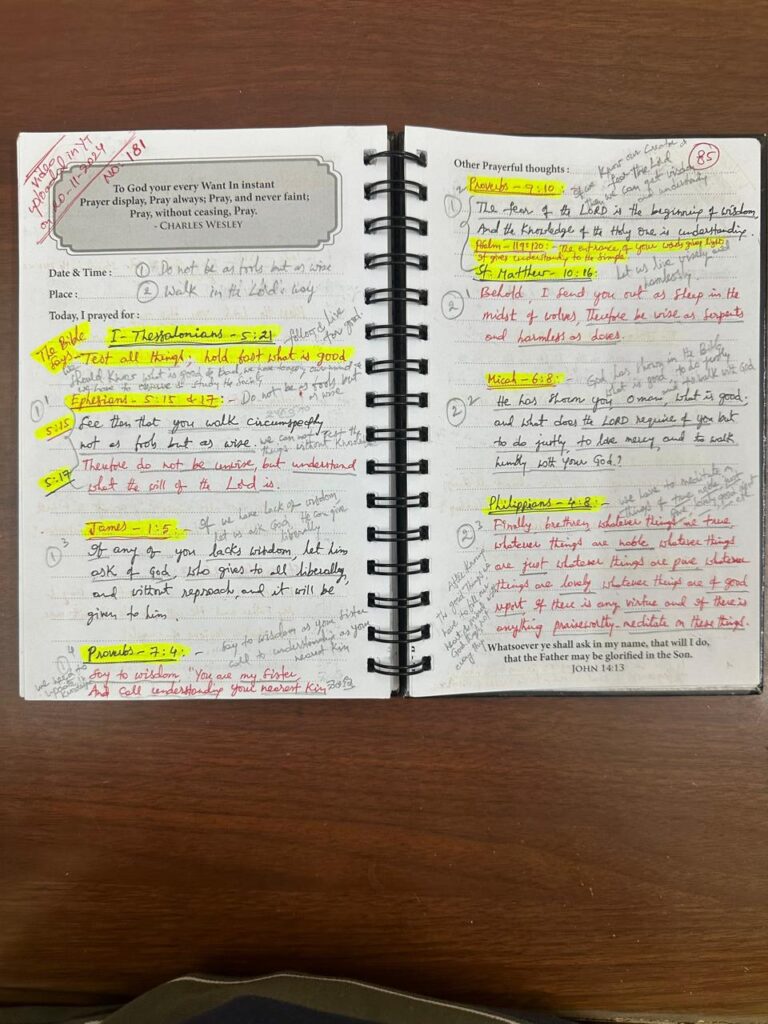 video
uploaded in YT
on 10-11-2024
NO: 181
To God your every Want In instant
Prayer display, Pray always; Pray, and never faint;
Pray, without ceasing, Pray.
- CHARLES WESLEY
Date & Time : ① Do not be as fools but as wise
Place : ② Walk in the Lord's way
Today, I prayed for :
The Bible
says -
I - Thessalonians - 5:21
follow & live
for good.
Test all things; hold fast what is good
Ephesians - 5:15 & 17 : - Do not be as fools but
as wise
①¹
5:15
See then that you walk circumspectly
not as fools but as wise.
we can not test the
things without
5:17
Therefore do not be unwise, but understand
what the will of the Lord is.
James - 1:5 - If we have lack of wisdom,
let us ask God, He can give
liberally
①³
If any of you lacks wisdom, let him
ask of God, who gives to all liberally,
and without reproach, and it will be
given to him.
Proverbs - 7:4 : - Say to wisdom as your sister
call to understanding as your
nearest kin
①⁴
we need to
Say to wisdom "You are my Sister,
And Call understanding your nearest Kin
Other Prayerful thoughts :
85
Proverbs - 9:10 :
If we know our creator &
fear the Lord
then we can get wisdom
and understanding
①²
The fear of the LORD is the beginning of wisdom,
And the knowledge of the Holy One is understanding.
Psalm - 119:130 : - The entrance of your words gives light.
It gives understanding to the simple.
St. Matthew - 10:16 : Let us live wisely and
harmlessly.
②¹
Behold, I send you out as sheep in the
midst of wolves, Therefore be wise as serpents
and harmless as doves.
Micah - 6:8 : - God has shown in the Bible,
what is good to do justly
to walk with God
②²
He has shown you, O man, what is good;
and what does the LORD require of you but
to do justly, to love mercy, and to walk
humbly with your God?
Philippians - 4:8 : - we have to meditate on
things of true,
②³
Finally brethren, whatever things are true,
whatever things are noble, whatever things
are just whatever things are pure whatever
things are lovely whatever things are of good
report If there is any virtue and if there is
anything praiseworthy - meditate on these things.
After knowing
the good things
Whatsoever ye shall ask in my name, that will I do,
that the Father may be glorified in the Son.
JOHN 14:13